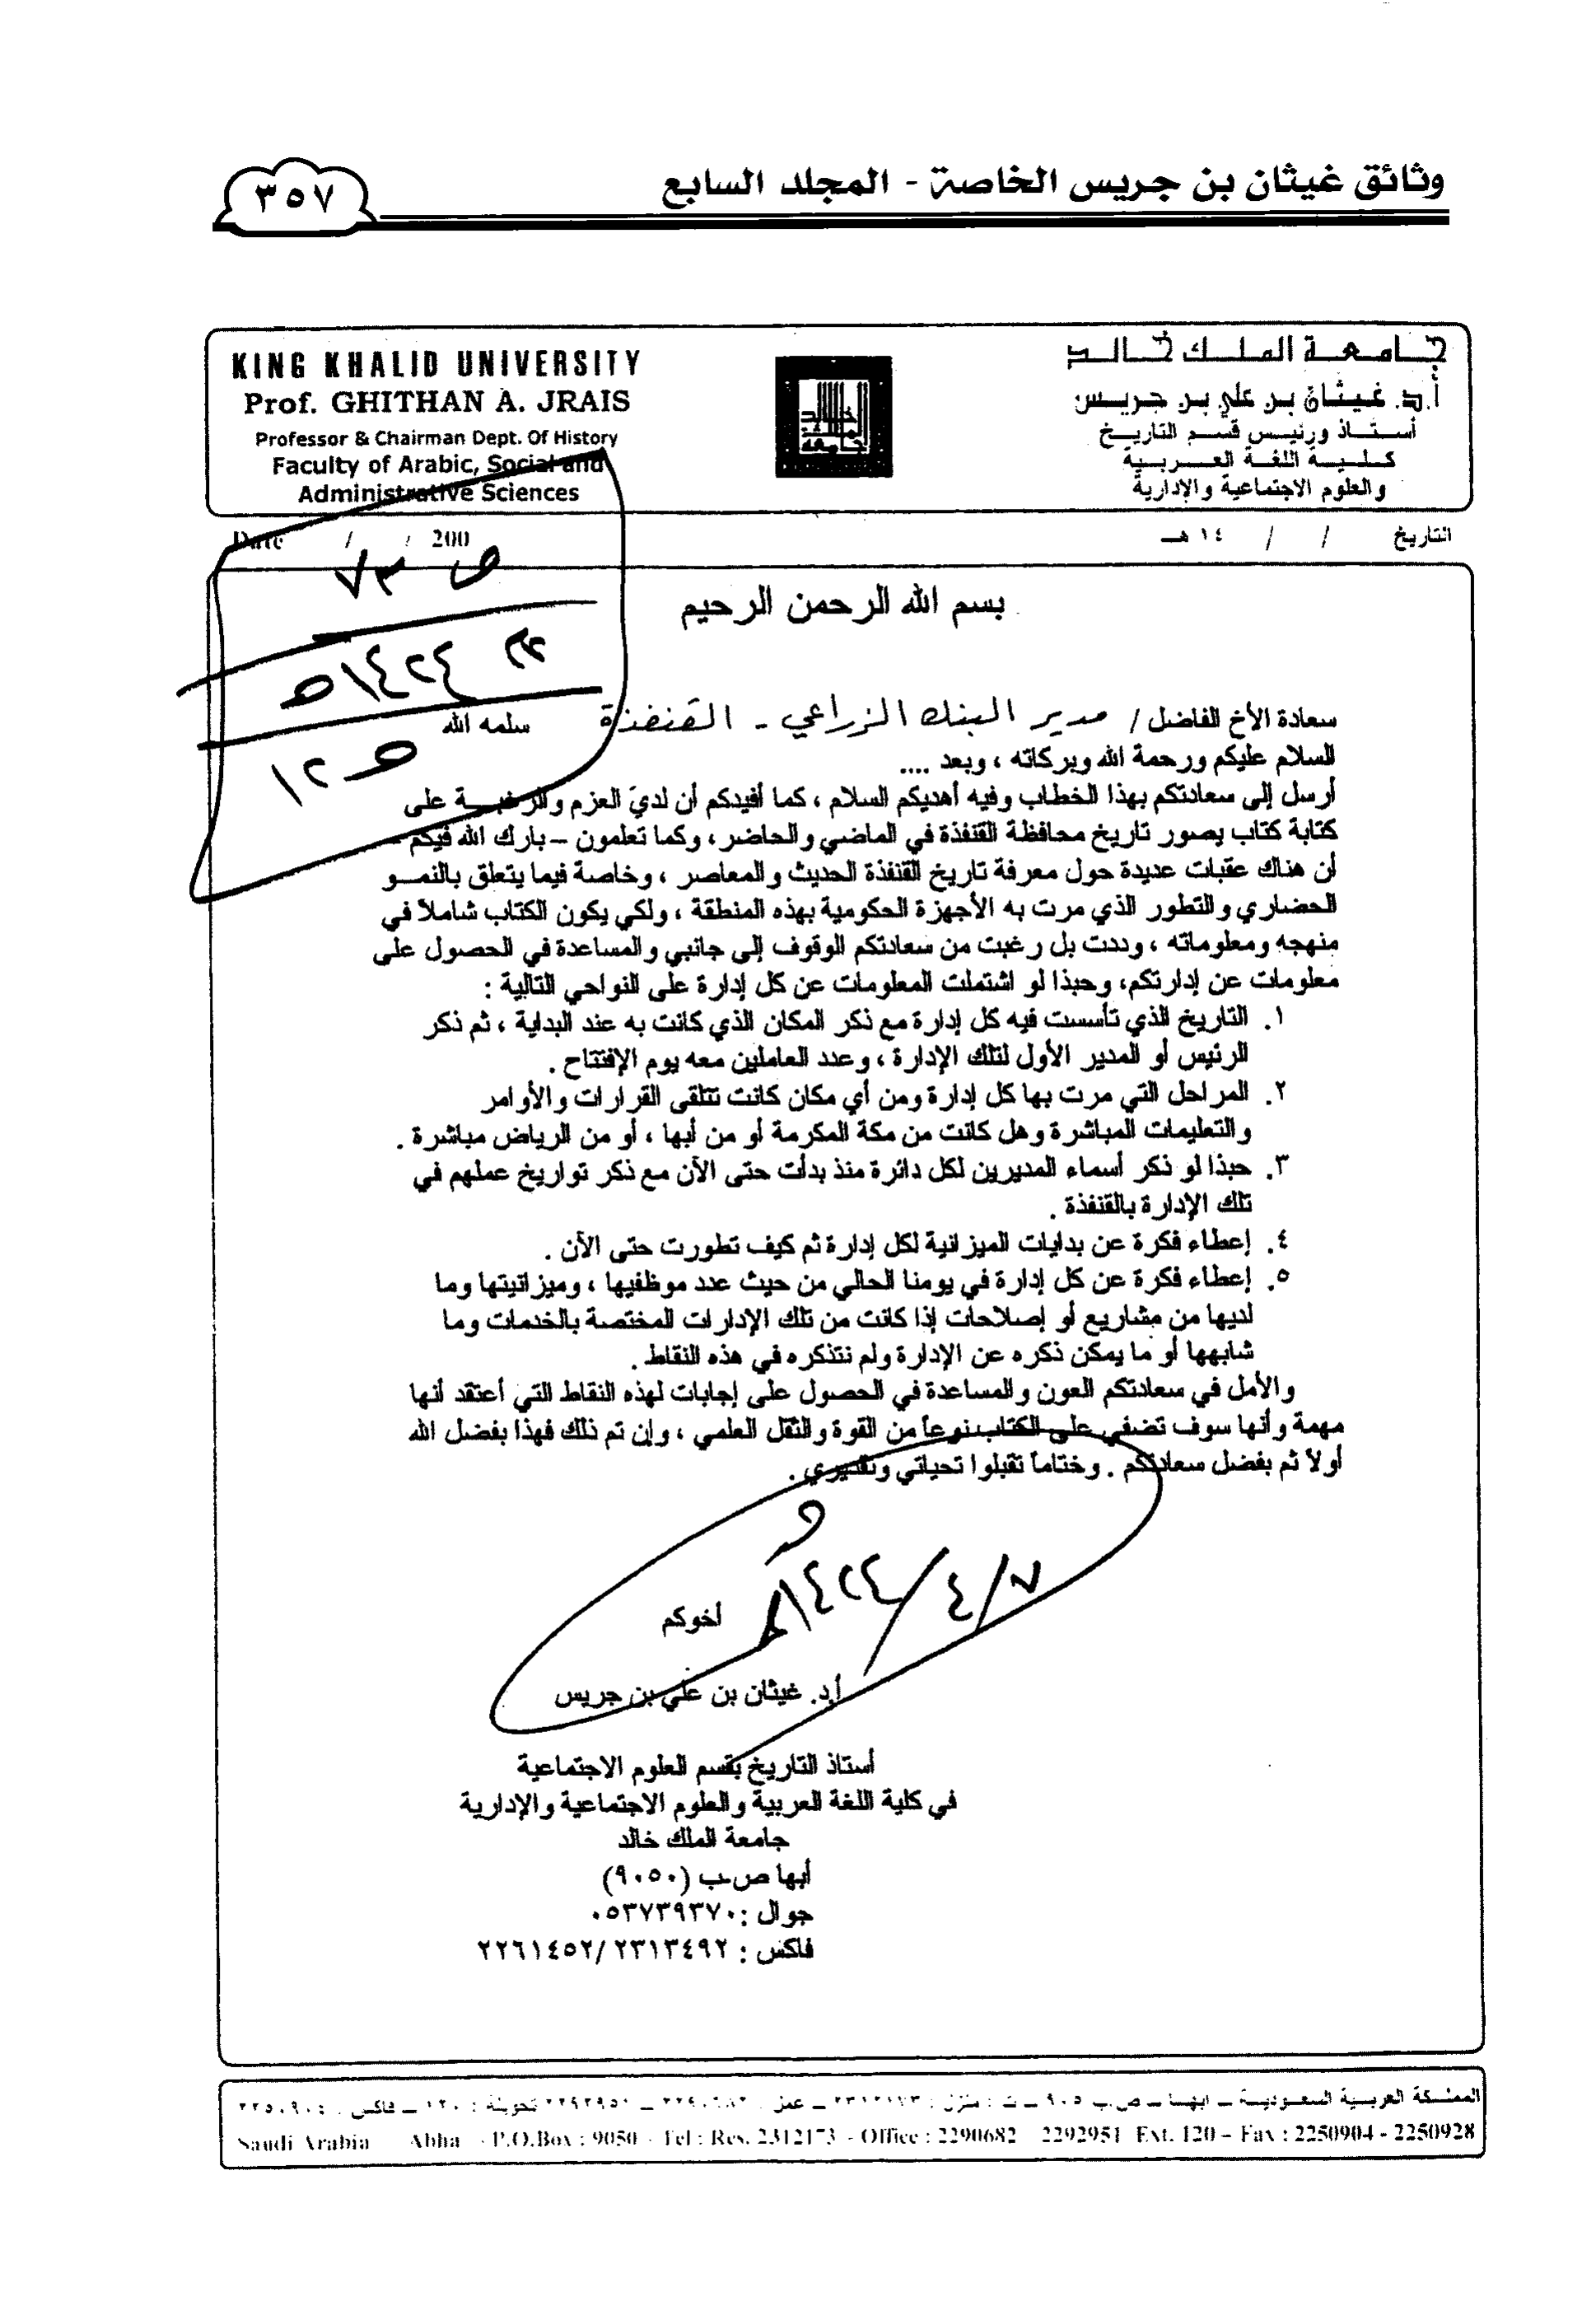 وثائق غيثان بن جريس الخاصة - المجلد السابع
٣٥٧
جامعة الملك خالد
أ.د. غيثان بن علي بن جريس
أستاذ ورئيس قسم التاريخ
كلية اللغة العربية
والعلوم الاجتماعية والإدارية
KING KHALID UNIVERSITY
Prof. GHITHAN A. JRAIS
Professor & Chairman Dept. Of History
Faculty of Arabic, Social and
Administrative Sciences
التاريخ / / ١٤ هـ
Date / / 200
ص ٧٣
١٤٢٤هـ
بسم الله الرحمن الرحيم
سعادة الأخ الفاضل / مدير البنك الزراعي - القنفذة سلمه الله
السلام عليكم ورحمة الله وبركاته ، وبعد ....
أرسل إلى سعادتكم بهذا الخطاب وفيه أهديكم السلام ، كما أفيدكم أن لديَ العزم والرغبة على
كتابة كتاب يصور تاريخ محافظة القنفذة في الماضي والحاضر، وكما تعلمون – بارك الله فيكم –
أن هناك عقبات عديدة حول معرفة تاريخ القنفذة الحديث والمعاصر ، وخاصة فيما يتعلق بالنمو
الحضاري والتطور الذي مرت به الأجهزة الحكومية بهذه المنطقة ، ولكي يكون الكتاب شاملاً في
منهجه ومعلوماته ، وددت بل رغبت من سعادتكم الوقوف إلى جانبي والمساعدة في الحصول على
معلومات عن إدارتكم، وحبذا لو اشتملت المعلومات عن كل إدارة على النواحي التالية :
١. التاريخ الذي تأسست فيه كل إدارة مع ذكر المكان الذي كانت به عند البداية ، ثم ذكر
الرئيس أو المدير الأول لتلك الإدارة ، وعدد العاملين معه يوم الإفتتاح .
٢. المراحل التي مرت بها كل إدارة ومن أي مكان كانت تتلقى القرارات والأوامر
والتعليمات المباشرة وهل كانت من مكة المكرمة أو من أبها ، أو من الرياض مباشرة .
٣. حبذا لو ذكر أسماء المديرين لكل دائرة منذ بدأت حتى الآن مع ذكر تواريخ عملهم في
تلك الإدارة بالقنفذة .
٤. إعطاء فكرة عن بدايات الميزانية لكل إدارة ثم كيف تطورت حتى الآن .
٥. إعطاء فكرة عن كل إدارة في يومنا الحالي من حيث عدد موظفيها ، وميزانيتها وما
لديها من مشاريع أو إصلاحات إذا كانت من تلك الإدارات المختصة بالخدمات وما
شابهها أو ما يمكن ذكره عن الإدارة ولم نتذكره في هذه النقاط .
والأمل في سعادتكم العون والمساعدة في الحصول على إجابات لهذه النقاط التي أعتقد أنها
مهمة وأنها سوف تضفي على الكتاب نوعاً من القوة والثقل العلمي ، وإن تم ذلك فهذا بفضل الله
أولاً ثم بفضل سعادتكم . وختاماً تقبلوا تحياتي وتقديري .
٧/٤/١٤٢٤هـ
أخوكم
أ.د. غيثان بن علي بن جريس
أستاذ التاريخ بقسم العلوم الاجتماعية
في كلية اللغة العربية والعلوم الاجتماعية والإدارية
جامعة الملك خالد
أبها ص.ب (٩٠٥٠)
جوال :٠٥٣٧٣٩٣٧٠
فاكس : ٢٣١٣٤٩٢/ ٢٢٦١٤٥٢
المملكة العربية السعودية – ابها – ص.ب ٩٠٥ – ت : منزل : ٢٣١٢١٧٣ – عمل – ٢٢٩٢٩٥١ تحويلة : ١٢٠ – فاكس
Saudi Arabia Abha - P.O.Box : 9050 - Tel : Res. 2312173 - Office : 2290682 2292951 Ext. 120 – Fax : 2250904 - 2250928